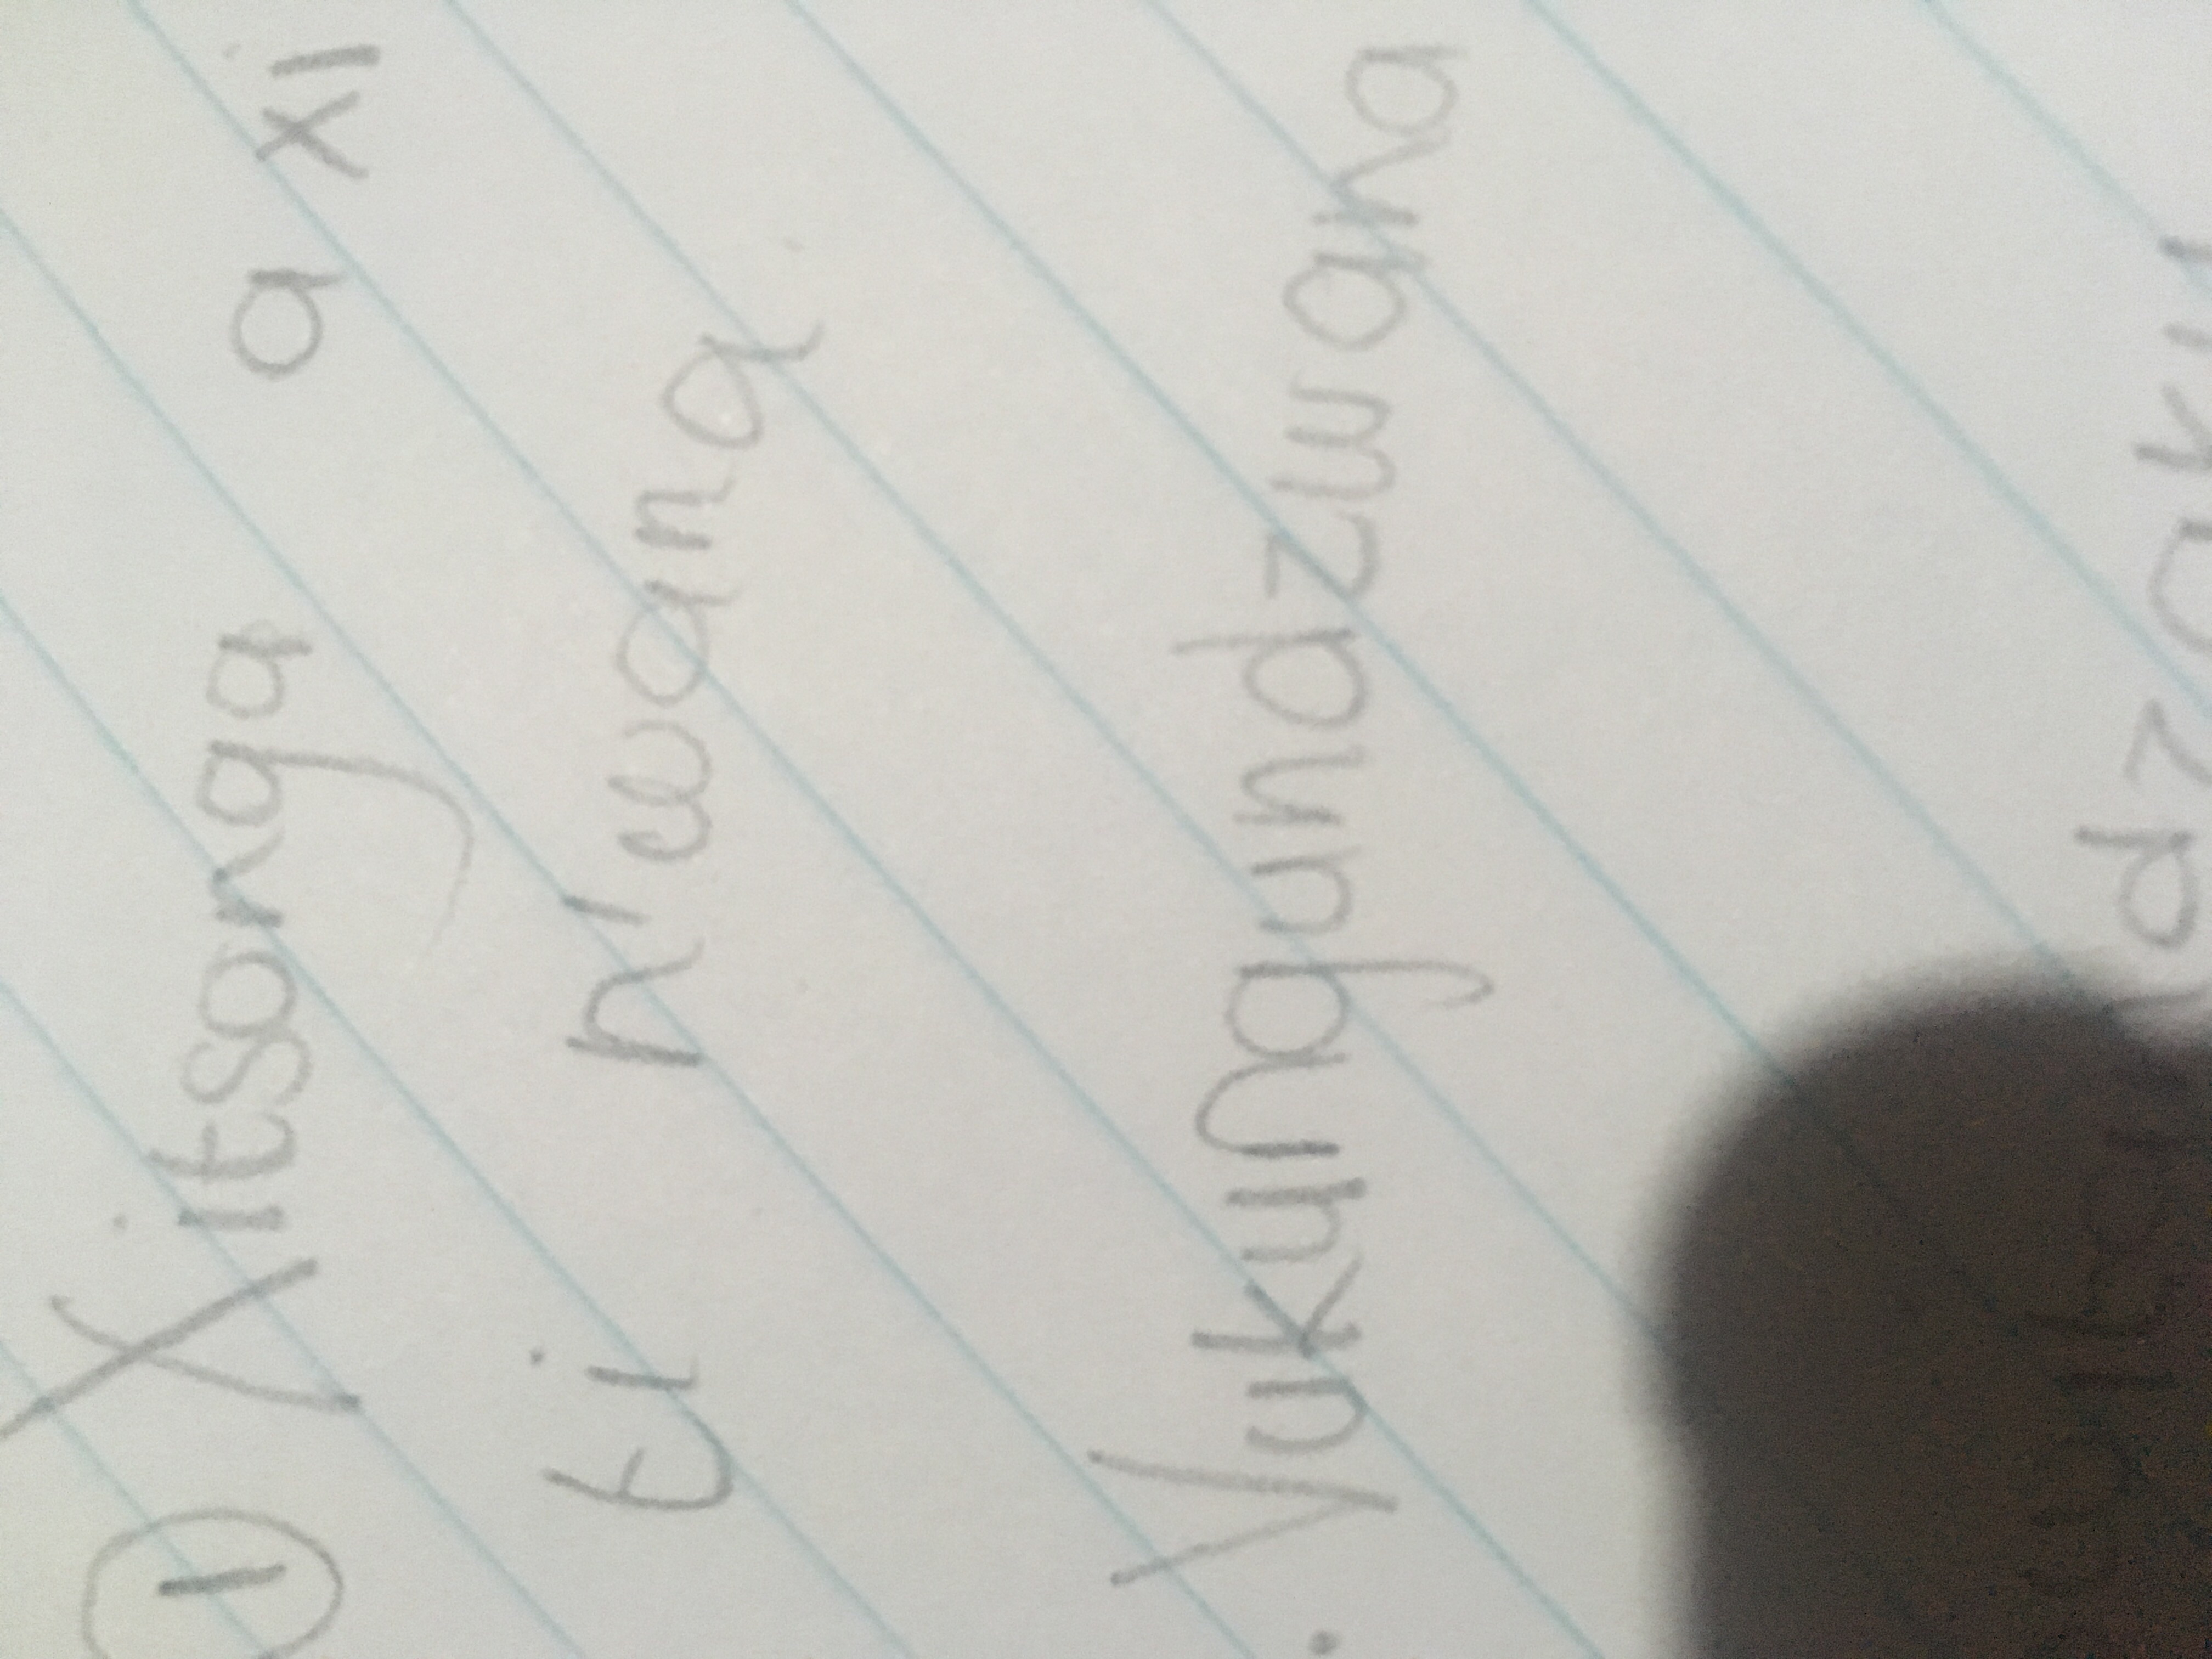 ① Xitsonga a xi
ti n'wana.
. Vukungundzwana